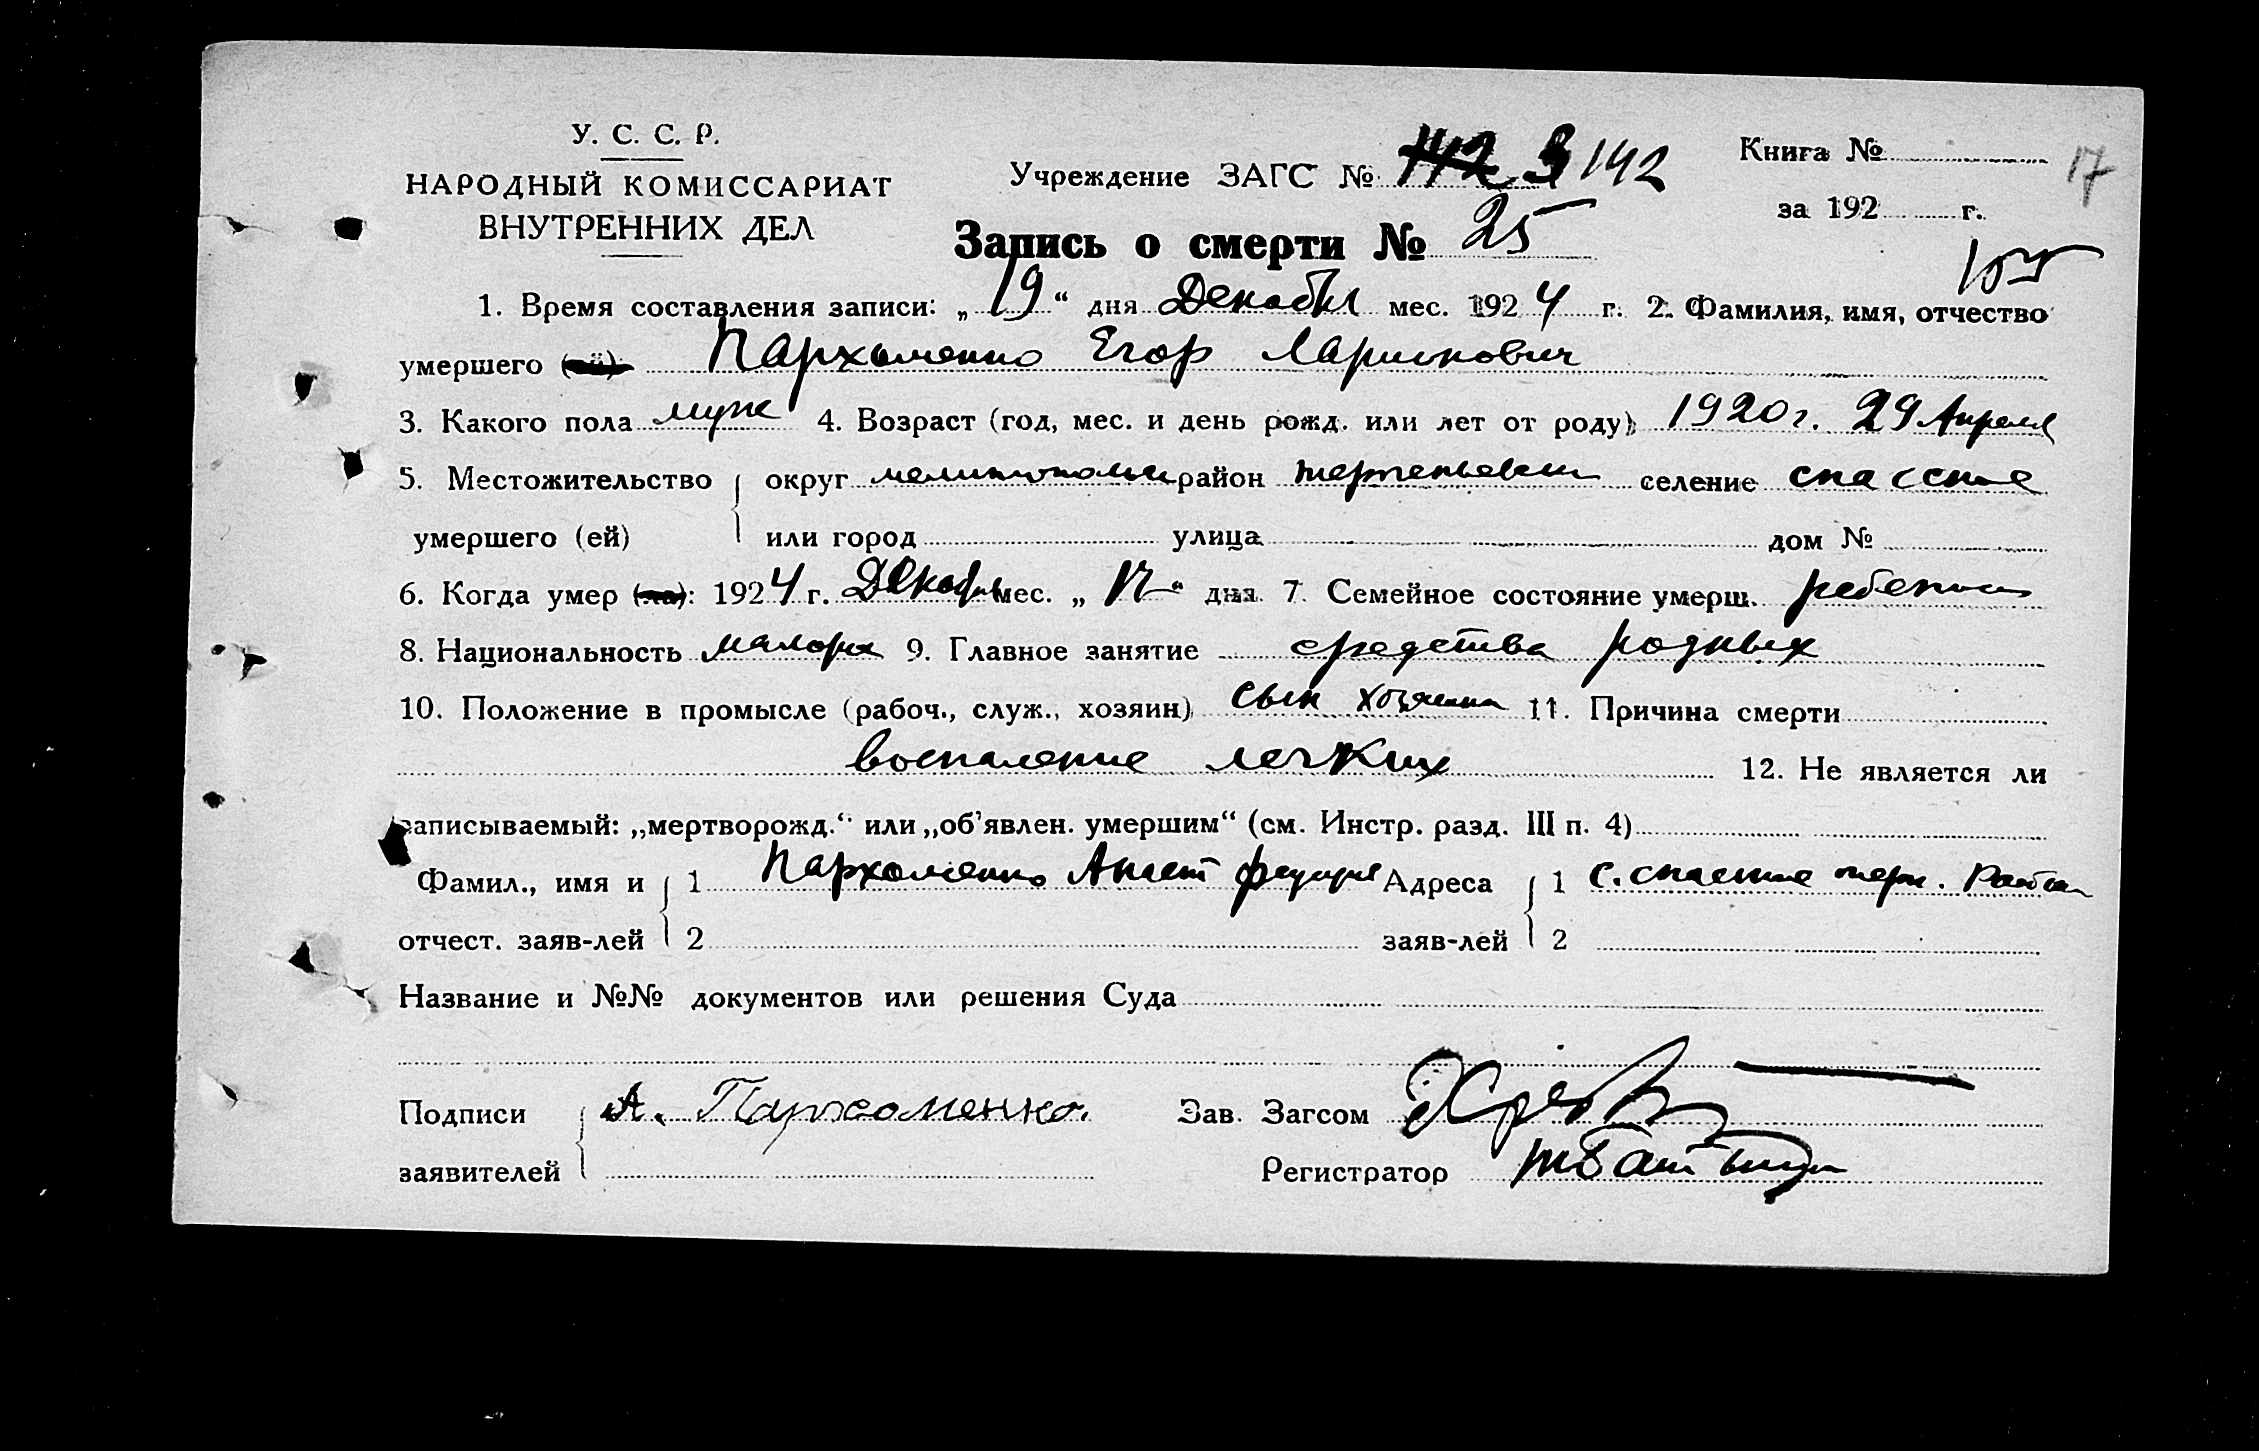 У. С. С. Р.
НАРОДНЫЙ КОМИССАРИАТ
ВНУТРЕННИХ ДЕЛ
Учреждение ЗАГС № 142
Книга № 17
за 192 г.
Запись о смерти № 25
105
1. Время составления записи: „19“ дня Декабря мес. 1924 г. 2. Фамилия, имя, отчество
умершего (ей) Пархоменко Егор Ларионович
3. Какого пола муж 4. Возраст (год, мес. и день рожд. или лет от роду) 1920 г. 29 Апреля
5. Местожительство округ мелитопольск район терпеньевск селение спасское
умершего (ей) или город улица дом №
6. Когда умер (ла): 1924 г. Декабрь мес. „17“ дня. 7. Семейное состояние умерш. ребенок
8. Национальность малорс 9. Главное занятие средства родных
10. Положение в промысле (рабоч., служ., хозяин) сын хозяина 11. Причина смерти
воспаление легких 12. Не является ли
записываемый: „мертворожд.“ или „об’явлен. умершим“ (см. Инстр. разд. III п. 4)
Фамил., имя и 1 Пархоменко Адреса 1 с. спасское терп. района
отчест. заяв-лей 2 заяв-лей 2
Название и №№ документов или решения Суда
Подписи А. Пархоменко. Зав. Загсом
заявителей Регистратор